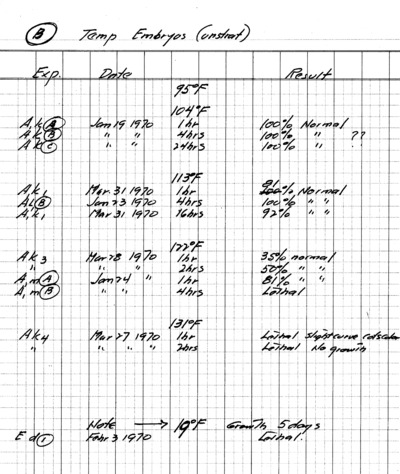 B Temp Embryos (unstrat)
Exp. Date Result
95°F
104°F
A, k A Jan 19 1970 1hr 100% Normal
A k B " " 4hrs 100% " ??
A k C " " 24hrs 100% "
113°F
A k, Mar. 31 1970 1hr % Normal
A L B Jan 23 1970 4hrs 100% " "
A, k, Mar 31 1970 16hrs 92% " "
122°F
A k 3 Mar 28 1970 1hr 35% normal
" " " " 2hrs 50% " "
A, m A Jan 24 " 1hr 81% " "
A, m B " " " 4hrs Lethal
131°F
A k 4 Mar 27 1970 1hr Lethal slight curve
" " " " 2hrs Lethal No growth
Note → 19°F Growth 5 days
E d 1 3 1970 Lethal.